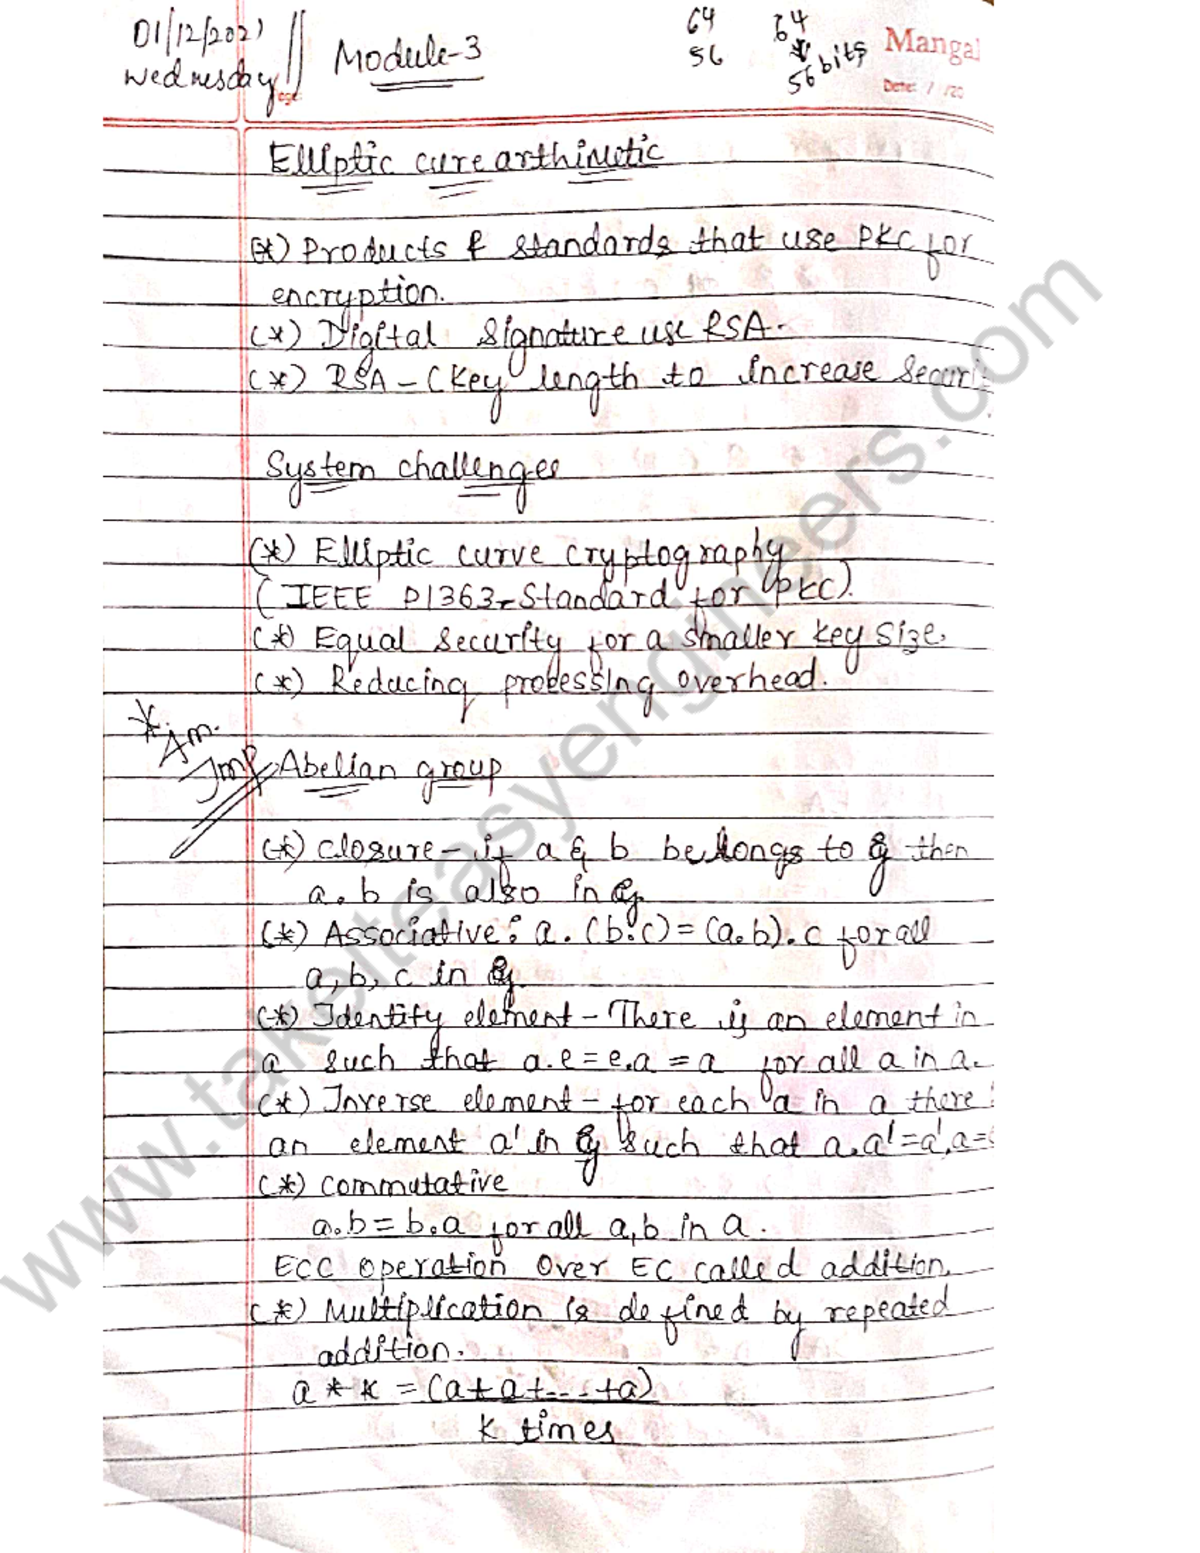 01/12/2021
Wednesday
Module-3
64 64
56 56 bits
Mangal
Date: / /20
Elliptic cure arthimetic
(*) Products & standards that use PKC for
encryption.
(*) Digital Signature use RSA.
(*) RSA - (Key length to increase securi
System challenges
(*) Elliptic curve cryptography
(IEEE P1363-Standard for PKC).
(*) Equal security for a smaller key size.
(*) Reducing processing overhead.
*
Imp
Abelian group
(*) closure - if a & b belongs to G then
a.b is also in G
(*) Associative: a.(b.c) = (a.b).c for all
a,b,c in G.
(*) Identify element - There is an element in
a such that a.e = e.a = a for all a in a.
(*) Inverse element - for each a in a there
an element a' in G such that a.a' = a'.a =
(*) commutative
a.b = b.a for all a,b in a.
ECC operation over EC called addition.
(*) Multiplication is defined by repeated
addition.
a * k = (a+a+...+a)
k times
www.takeiteasyengineers.com